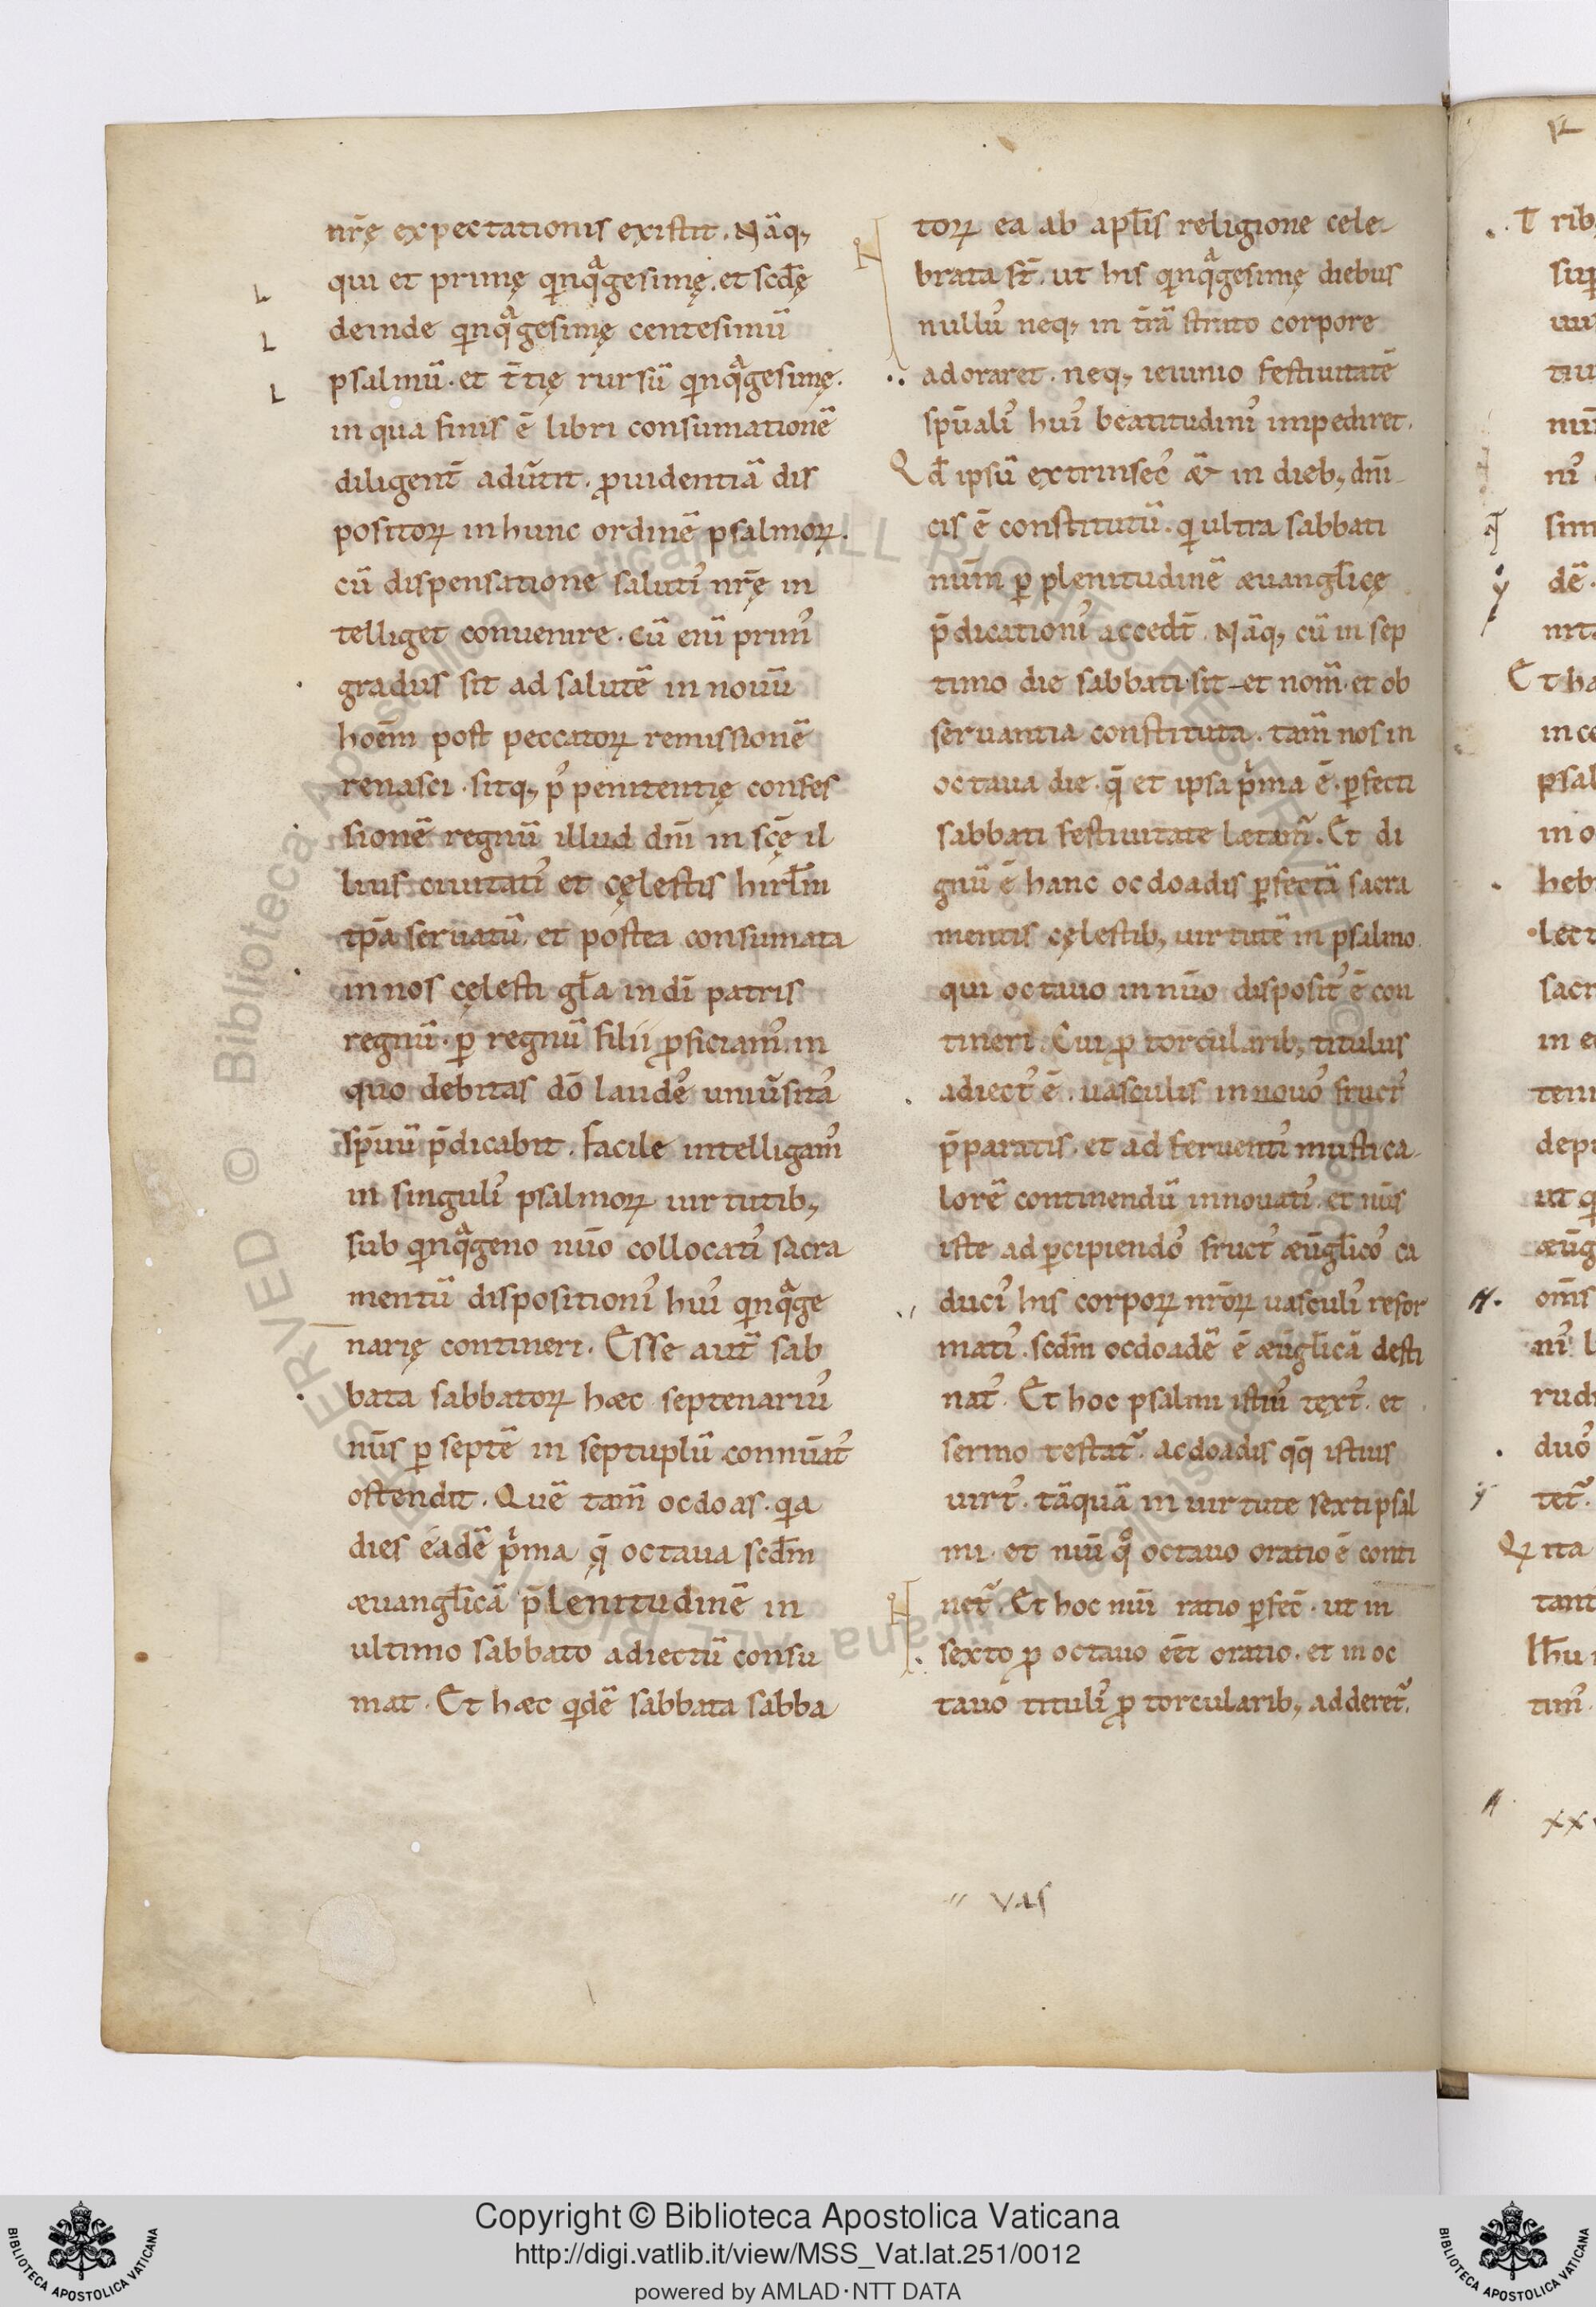 nr̄ę expectationis existit. Nāq;
qui et primę qinqᵃgesimę. et scd̄ę
deinde qinqᵃgesimę centesimū
psalmū. et t̄tię rursū qinqᵃgesimę.
in qua finis ē libri consumationē
diligent̄ adūtit. ꝓuidentiā dis
positoꝝ in hunc ordinē psalmoꝝ.
cū dispensatione saluti᾽ nr̄ę in
telliget conuenire. Cū eni᾽ prim᾽
gradus sit ad salutē in nouū
hoēm post peccatoꝝ remissionē
renasci. sitq; p᾽ penitentię confes
sionē regnū illud dn̄i in scę̄ il
lius ciuitati᾽ et cęlestis hirl̄m
tp̄a seruatū. et postea consumata
in nos cęlesti gl̄a in di̅ patris
regnū. ꝑ regnū filii ꝓficiam᾽. in
quo debitas dō laude᾽ uniūsita᾽
sp̄uū p̄dicabit. facile intelligam᾽
in singuli᾽ psalmoꝝ uirtutib;
sub qinqᵃgeno nūo collocati᾽ sacra
mentū dispositioni᾽ hui᾽ qinqᵃge
narię contineri. Esse aut̄ sab
bata sabbatoꝝ hæc septenariu᾽
nūs ꝑ septē in septuplū connūat᾽
ostendit. Quē tam̄ ocdoas. qia
dies eadē pⁱma q̄ octaua scd̄m
æuangl̄icā p̄lenitudinē in
ultimo sabbato adiectū consu
mat. Et hæc qidē sabbata sabba
toꝝ ea ab apl̄is religione cele-
brata st̄. ut his qinqᵃgesimę diebus
nullu᾽ neq; in t̄rā strato corpore
adoraret. neq; ieiunio festiuitatē
sp̄uali᾽ hui᾽ beatitudini᾽ impediret.
Qd̄ ipsū extrinsec᾽ &̄ in dieb; dn̄i-
cis ē constitutū. qi ultra sabbati
nūm ꝑ plenitudinē æuangl̄icę
p̄dicationi᾽ accedt̄. Nāq; cū in sep
timo die sabbati. sit et nom̄. et ob
seruantia constituta. tam̄ nos in
octaua die. q̄ et ipsa pⁱma ē. ꝑfecti
sabbati festiuitate lætam᾽. Et di
gnū ē hanc ocdoadis ꝑfectā sacra
mentis cęlestib; uirtutē in psalmo
qui octauo in nūo disposit᾽ ē con
tineri. Cui ꝓ torcularib; titulus
adiect᾽ ē. uasculis in nouo᾽ fruct᾽
p̄paratis. et ad feruenti᾽ musti ca-
lorē continendū innouati᾽. et nūs
iste ad ꝑcipiendo᾽ fruct᾽ æūgl̄ico᾽ ca
duci᾽ his corpoꝝ nr̄oꝝ uasculi᾽ refor
mati᾽. scd̄m ocdoadē ē æūgl̄icā desti
nat᾽. Et hoc psalmi istiu᾽ text᾽. et
sermo testat᷑. ac doadis qq̄ istius
uirt᾽. tāquā in uirtute sexti psal
mi. et nūi qᵒ octauo oratio ē conti
net᷑. Et hoc nūi ratio ꝑfec̄. ut in
sexto ꝓ octauo eēt oratio. et in oc
tauo tituli᾽ ꝓ torcularib; adderet᷑.
vas
Copyright © Biblioteca Apostolica Vaticana
http://digi.vatlib.it/view/MSS_Vat.lat.251/0012
powered by AMLAD·NTT DATA